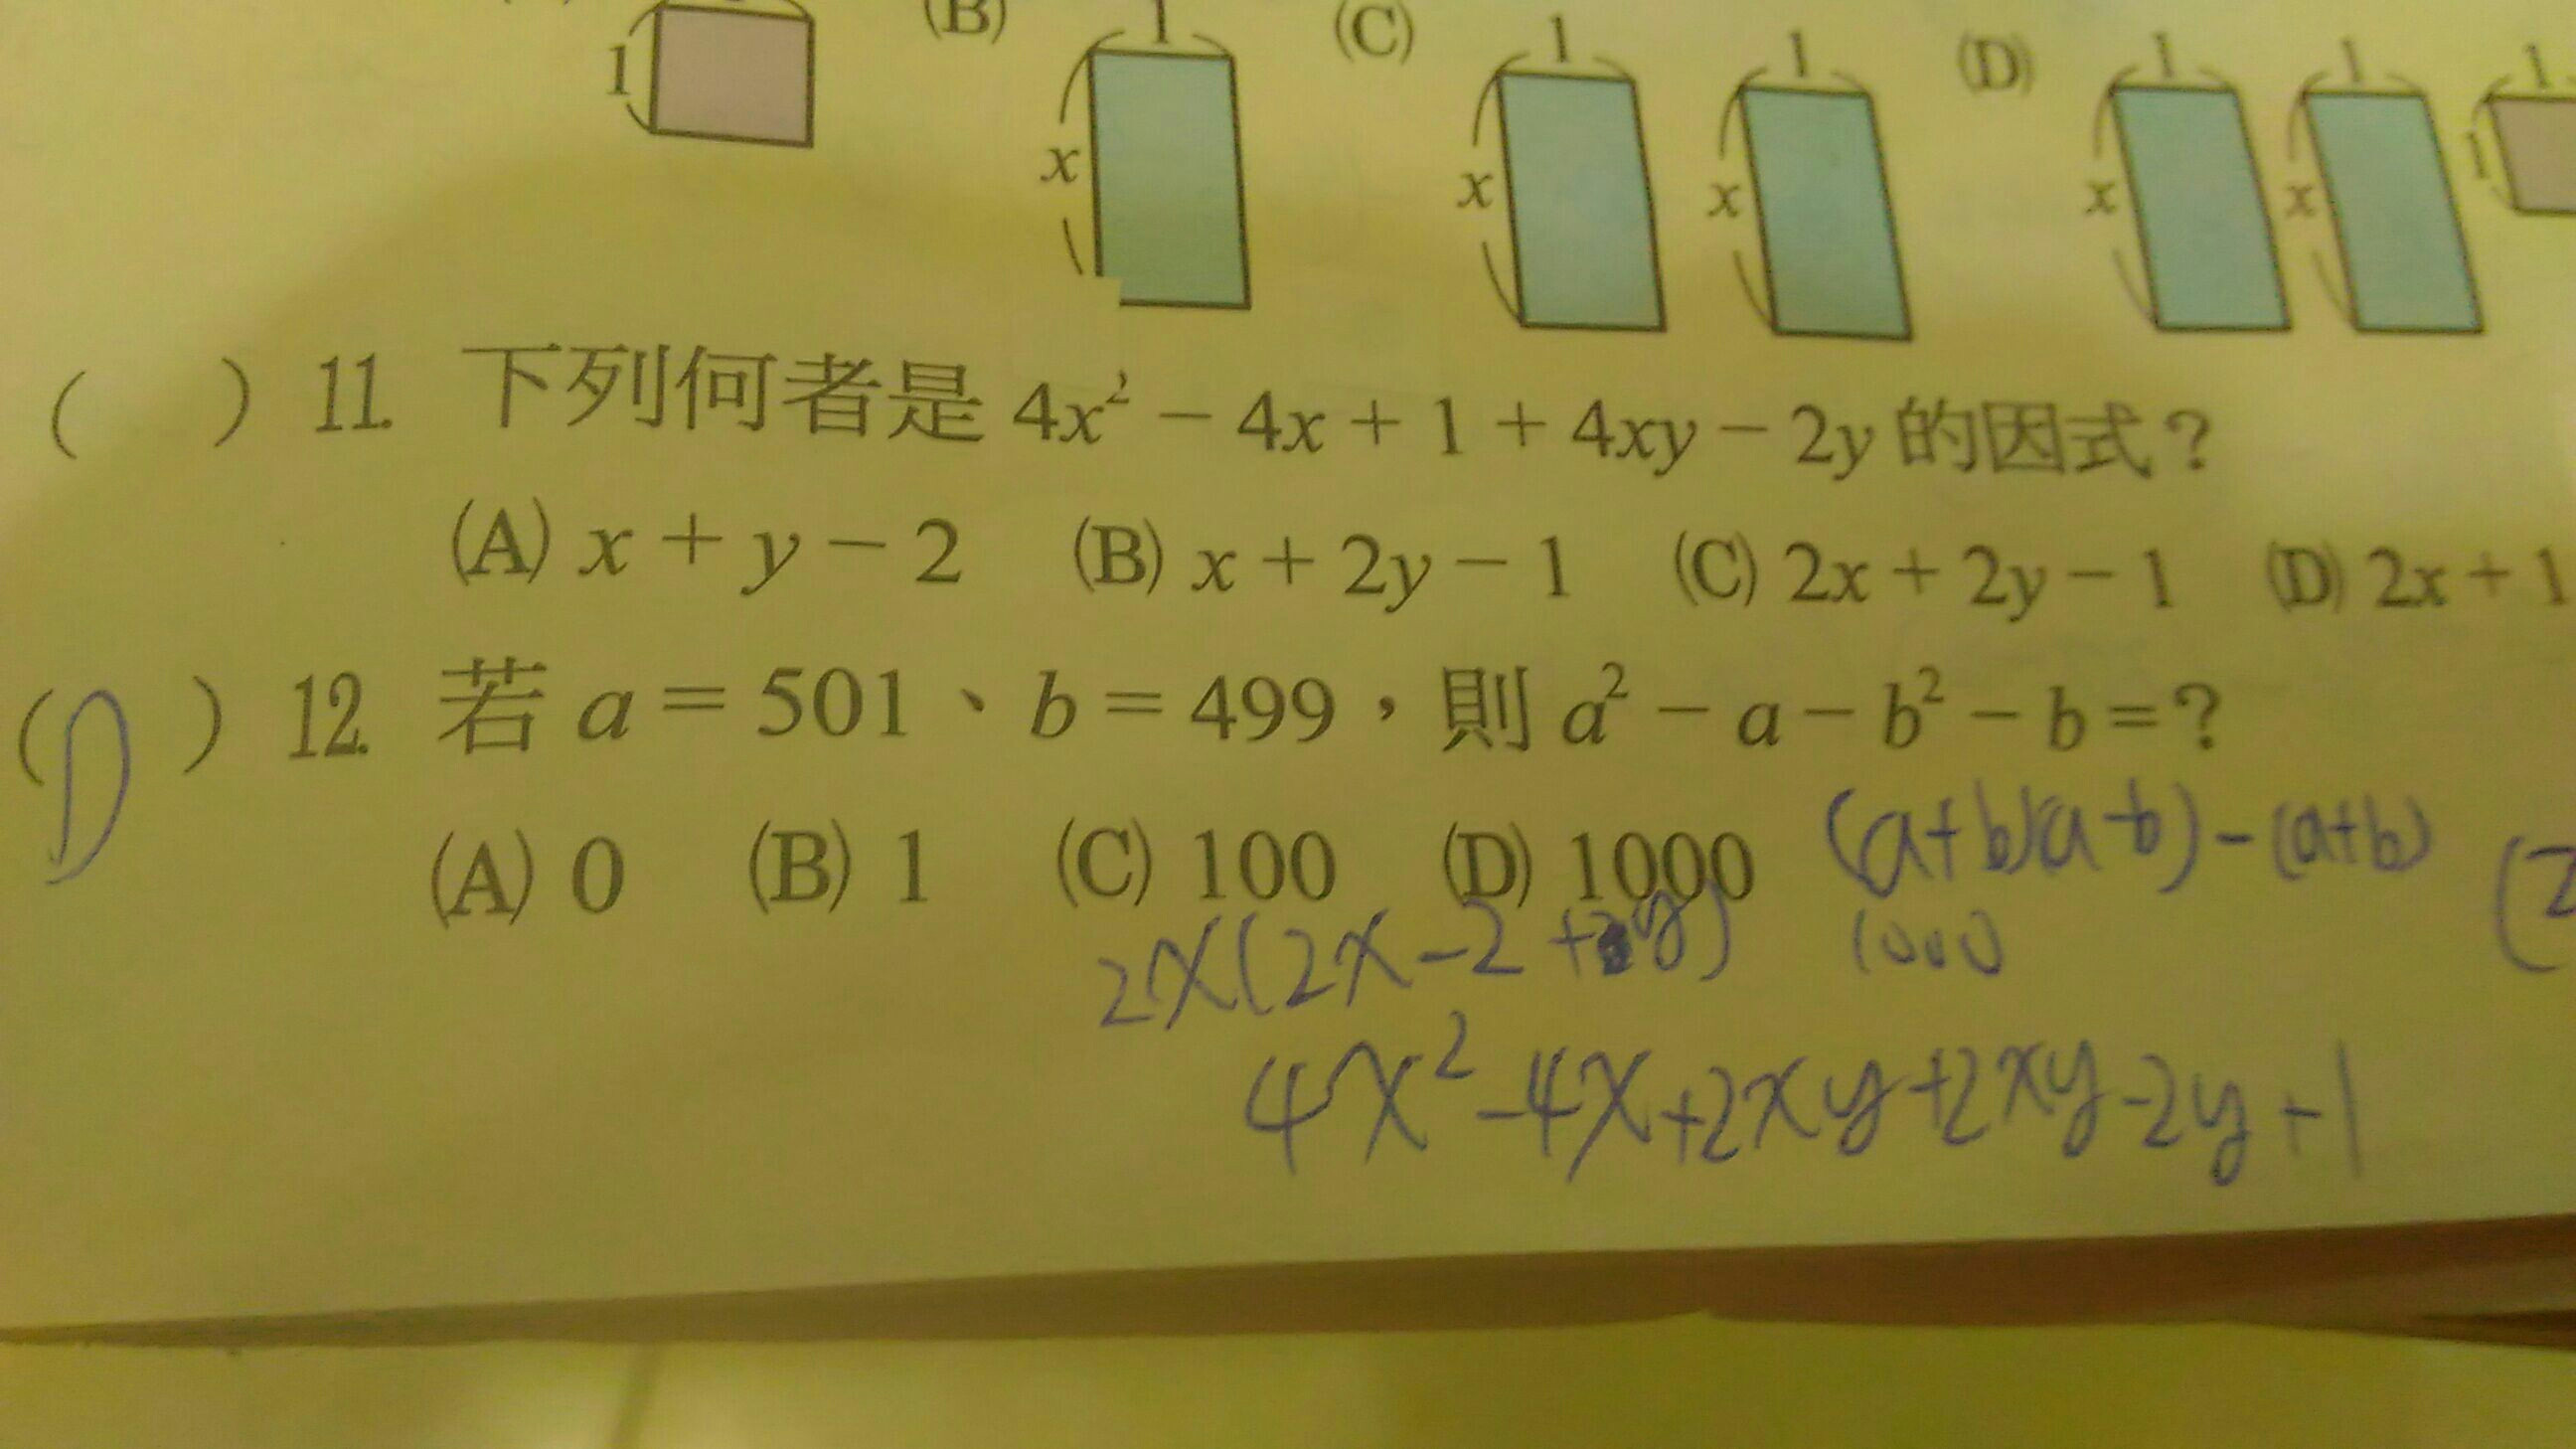 (B) (C) (D)
1 1 1 1 1 1
1 x x x x x 1
( ) 11. 下列何者是 4x² − 4x + 1 + 4xy − 2y 的因式？
(A) x + y − 2 (B) x + 2y − 1 (C) 2x + 2y − 1 (D) 2x + 1
(D) 12. 若 a = 501、b = 499，則 a² − a − b² − b = ?
(A) 0 (B) 1 (C) 100 (D) 1000 (a+b)(a-b)-(a+b)
2x(2x-2+2y) 1000 (2
4x²-4x+2xy+2xy-2y+1